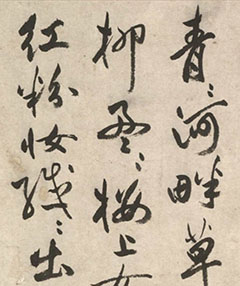 青〻河畔草
柳盈〻樓上女
紅粉妝纖〻出